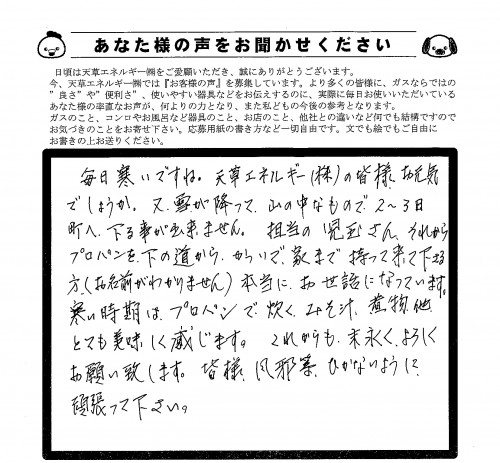 あなた様の声をお聞かせください
日頃は天草エネルギー㈱をご愛顧いただき、誠にありがとうございます。
今、天草エネルギー㈱では『お客様の声』を募集しています。より多くの皆様に、ガスならではの
"良さ"や"便利さ"、使いやすい器具などをお伝えするのに、実際に毎日お使いいただいている
あなた様の率直なお声が、何よりの力となり、また私どもの今後の参考となります。
ガスのこと、コンロやお風呂など器具のこと、お店のこと、他社との違いなど何でも結構ですので
お気づきのことをお寄せ下さい。応募用紙の書き方など一切自由です。文でも絵でもご自由に
お書きの上お送りください。
毎日寒いですね。天草エネルギー(株)の皆様、お元気
でしょうか。又、雪が降って、山の中なもので、2～3日
町へ下る事が出来ません。担当の児玉さん、それから
プロパンを、下の道から、かついで、家まで持って来て下さる
方、(お名前がわかりません)本当に、お世話になっています。
寒い時期は、プロパンで炊く、みそ汁、煮物、他
とても美味しく感じます。これからも、末永く、よろしく
お願い致します。皆様、風邪等、ひかないように
頑張って下さい。